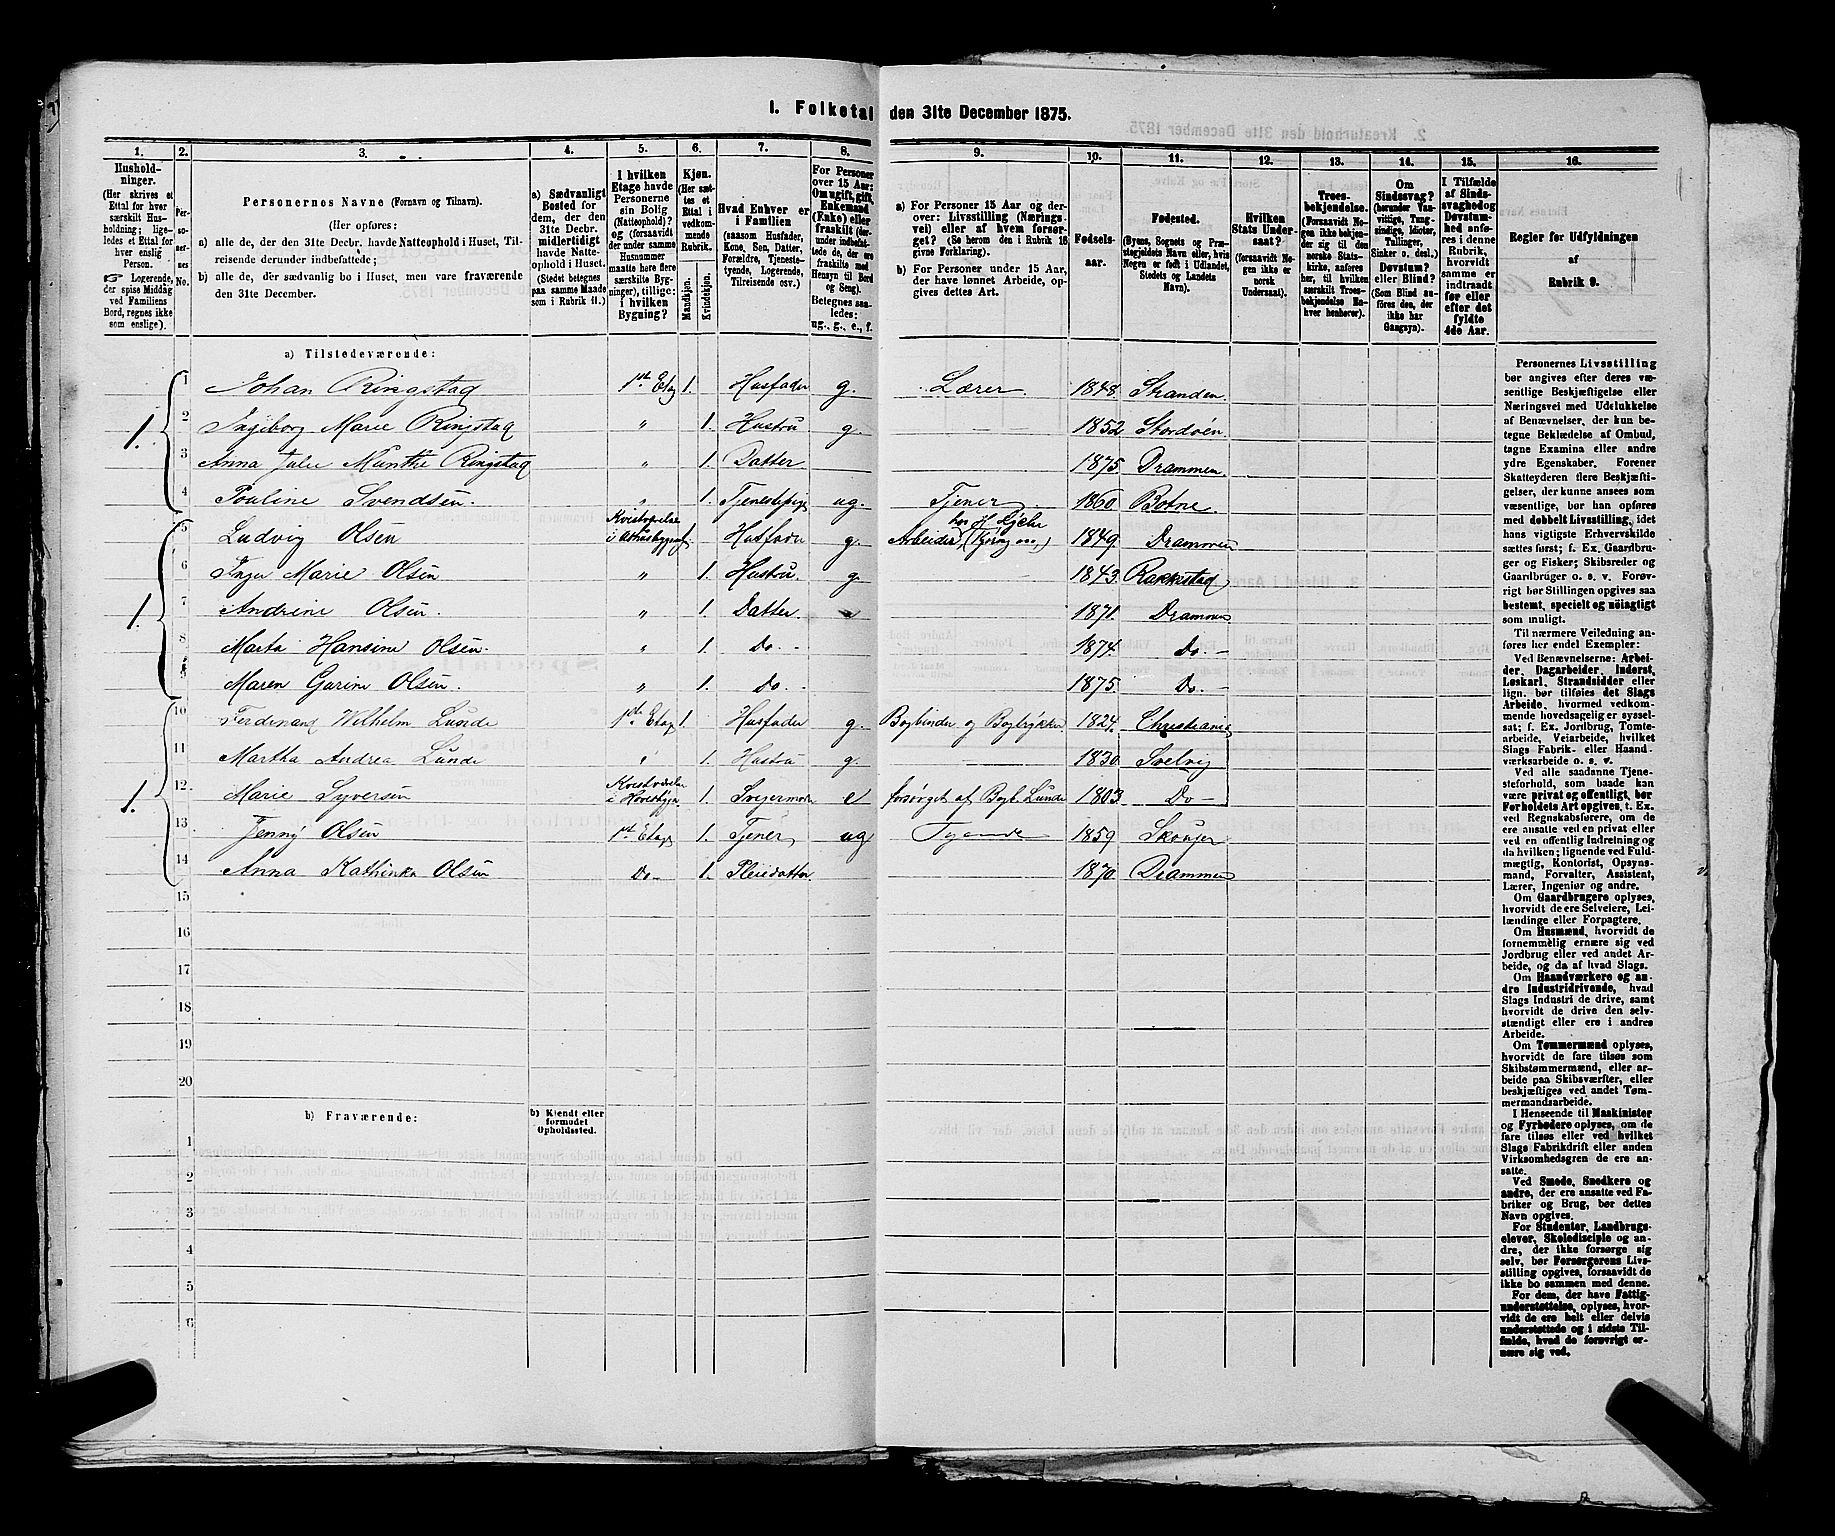 I. Folketal den 31te December 1875.
1. 2. 3. 4. 5. 6. 7. 8. 9. 10. 11. 12. 13. 14. 15. 16.
Husholdninger. (Her skrives et Ettal for hver særskilt Husholdning; ligeledes et Ettal for hver enslig Person. ☞ Logerende, der spise Middag ved Familiens Bord, regnes ikke som enslige).
Personernes No.
Personernes Navne (Fornavn og Tilnavn).
(Her opføres:
a) alle de, der den 31te Decbr. havde Natteophold i Huset, Tilreisende derunder indbefattede;
b) alle de, der sædvanlig bo i Huset, men vare fraværende den 31te December.
a) Sædvanligt Bosted for dem, der den 31te Decbr. midlertidigt havde Natteophold i Huset. (Stedet betegnes paa samme Maade som i Rubrik 11.)
I hvilken Etage havde Personerne sin Bolig (Natteophold)? og (forsaavidt der under samme Husnummer maatte høre flere særskilte Bygninger), tillige: i hvilken Bygning?
Kjøn. (Her sættes et Ettal i vedkommende Rubrik.
Mandkjøn. Kvindekjøn.
Hvad Enhver er i Familien (saasom Husfader, Kone, Søn, Datter, Forældre, Tjenestetyende, Logerende, Tilreisende osv.)
For Personer over 15 Aar: Om ugift, gift, Enkemand (Enke) eller fraskilt (derunder indbefattede de, der ere fraskilte med Hensyn til Bord og Seng). Betegnes saaledes: ug., g., e., f.
a) For Personer 15 Aar og derover: Livsstilling (Næringsvei) eller af hvem forsørget? (Se herom den i Rubrik 16 givne Forklaring).
b) For Personer under 15 Aar, der have lønnet Arbeide, opgives dettes Art.
Fødselsaar.
Fødested. (Byens, Sognets og Præstegjeldets Navn eller, hvis Nogen er født i Udlandet, Stedets og Landets Navn).
Hvilken Stats Undersaat? (forsaavidt Nogen ikke er norsk Undersaat).
Troesbekjendelse. (Forsaavidt Nogen ikke bekjender sig til den norske Statskirke, anføres her, til hvilken særskilt Troesbekjendelse Enhver henhører).
Om Sindssvag? (herunder Vanvittige, Tungsindige, Idioter, Tullinger, Sinker o. desl.). Døvstum? eller Blind? (Som Blind anføres den, der ikke har Gangsyn).
I Tilfælde af Sindssvaghed og Døvstumhed anføres i denne Rubrik, hvorvidt samme er indtraadt før eller efter det fyldte 4de Aar.
Regler for Udfyldningen af Rubrik 9.
a) Tilstedeværende:
1 Johan Ringstad 1st Etag 1. Husfader g. Lærer 1848. Stranden
1. 2 Ingeborg Marie Ringstad " 1. Hustru g. 1852 Stordøen
3 Anna Julie Munthe Ringstad " 1. Datter 1875 Drammen
4 Pouline Svendsen. " 1. ug. Tjener 1860 Botne
5 Ludvig Olsen Husfader g. Arbeider 1849. Drammen
6 Inger Marie Olsen " 1. Hustru. g. 1843. Rakkestad
1. 7 Andrine Olsen. " 1. Datter 1871. Drammen
8 Marta Hansine Olsen. " 1. Do. 1874. Do.
9 Maren Garine Olsen. " 1. Do. 1875. Do.
10 Ferdinand Wilhelm Lunde 1ste Etag 1. Husfader g. Bogbinder og Bogtrykker 1824. Christiania
11 Martha Andrea Lunde " 1. Hustru g. 1830. Svelvig
1. 12 Marie Syversen 1. Svigermoder e forsørget af Bogb. Lunde 1803. Do
13 Jenny Olsen 1st Etage 1. Tjener ug Tyende 1859 Skouger
14 Anna Kathinka Olsen Do 1. Pleiedatter. 1870. Drammen
15
16
17
18
19
20
b) Fraværende:
b) Kjendt eller formodet Opholdssted.
1
2
3
4
5
6
Personernes Livsstilling
bør angives efter deres væsentlige Beskjæftigelse eller
Næringsvei med Udelukkelse
af Benævnelser, der kun betegne Beklædelse af Ombud,
tagne Examina eller andre
ydre Egenskaber. Forener
Skatteyderen flere Beskjæftigelser, der kunne ansees som
væsentlige, bør han opføres
med dobbelt Livsstilling, idet
hans vigtigste Erhvervskilde
sættes først; f. Ex. Gaardbruger og Fisker; Skibsreder og
Gaardbruger o. s. v. Forøvrigt bør Stillingen opgives saa
bestemt, specielt og nøiagtigt
som muligt.
Til nærmere Veiledning anføres her endel Exempler:
Ved Benævnelserne: Arbeider, Dagarbeider, Inderst,
Løskarl, Strandsidder eller
lign. bør tilføies det Slags
Arbeide, hvormed vedkommende hovedsagelig er sysselsat; f. Ex. Jordbrug, Tomtearbeide, Veiarbeide, hvilket
Slags Fabrik- eller Haandværksarbeide o. s. v.
Ved alle saadanne Tjenesteforhold, som baade kan
være privat og offentligt, bør
Forholdets Art opgives, t. Ex.
ved Regnskabsførere, om de
ere ansatte ved en privat eller
ved en offentlig Indretning og
da hvilken; lignende ved Fuldmægtig, Kontorist, Opsynsmand, Forvalter, Assistent,
Lærer, Ingeniør og andre.
Om Gaardbrugere oplyses,
hvorvidt de ere Selveiere, Leilændinge eller Forpagtere.
Om Husmænd, hvorvidt de
fornemmelig ernære sig ved
Jordbrug eller ved andet Arbeide, og da af hvad Slags.
Om Haandværkere og andre Industridrivende, hvad
Slags Industri de drive, samt
hvorvidt de drive den selvstændigt eller ere i andres
Arbeide.
Om Tømmermænd oplyses,
hvorvidt de fare tilsøs som
Skibstømmermænd, eller arbeide paa Skibsværfter, eller
beskjæftiges ved andet Tømmermandsarbeide.
I Henseende til Maskinister
og Fyrbødere oplyses, om de
fare tilsøs eller ved hvilket
Slags Fabrikdrift eller anden
Virksomhedsgren de ere ansatte.
Ved Smede, Snedkere og
andre, der ere ansatte ved Fabriker og Brug, bør dettes
Navn opgives.
For Studenter, Landbrugselever, Skoledisciple og andre, der ikke forsørge sig
selv, bør Forsørgerens Livsstilling opgives, forsaavidt de
ikke bo sammen med denne.
For dem, der have Fattigunderstøttelse, oplyses, hvorvidt de ere helt eller delvis
understøttede og i sidste Tilfælde, hvad de forøvrigt ernære sig ved.